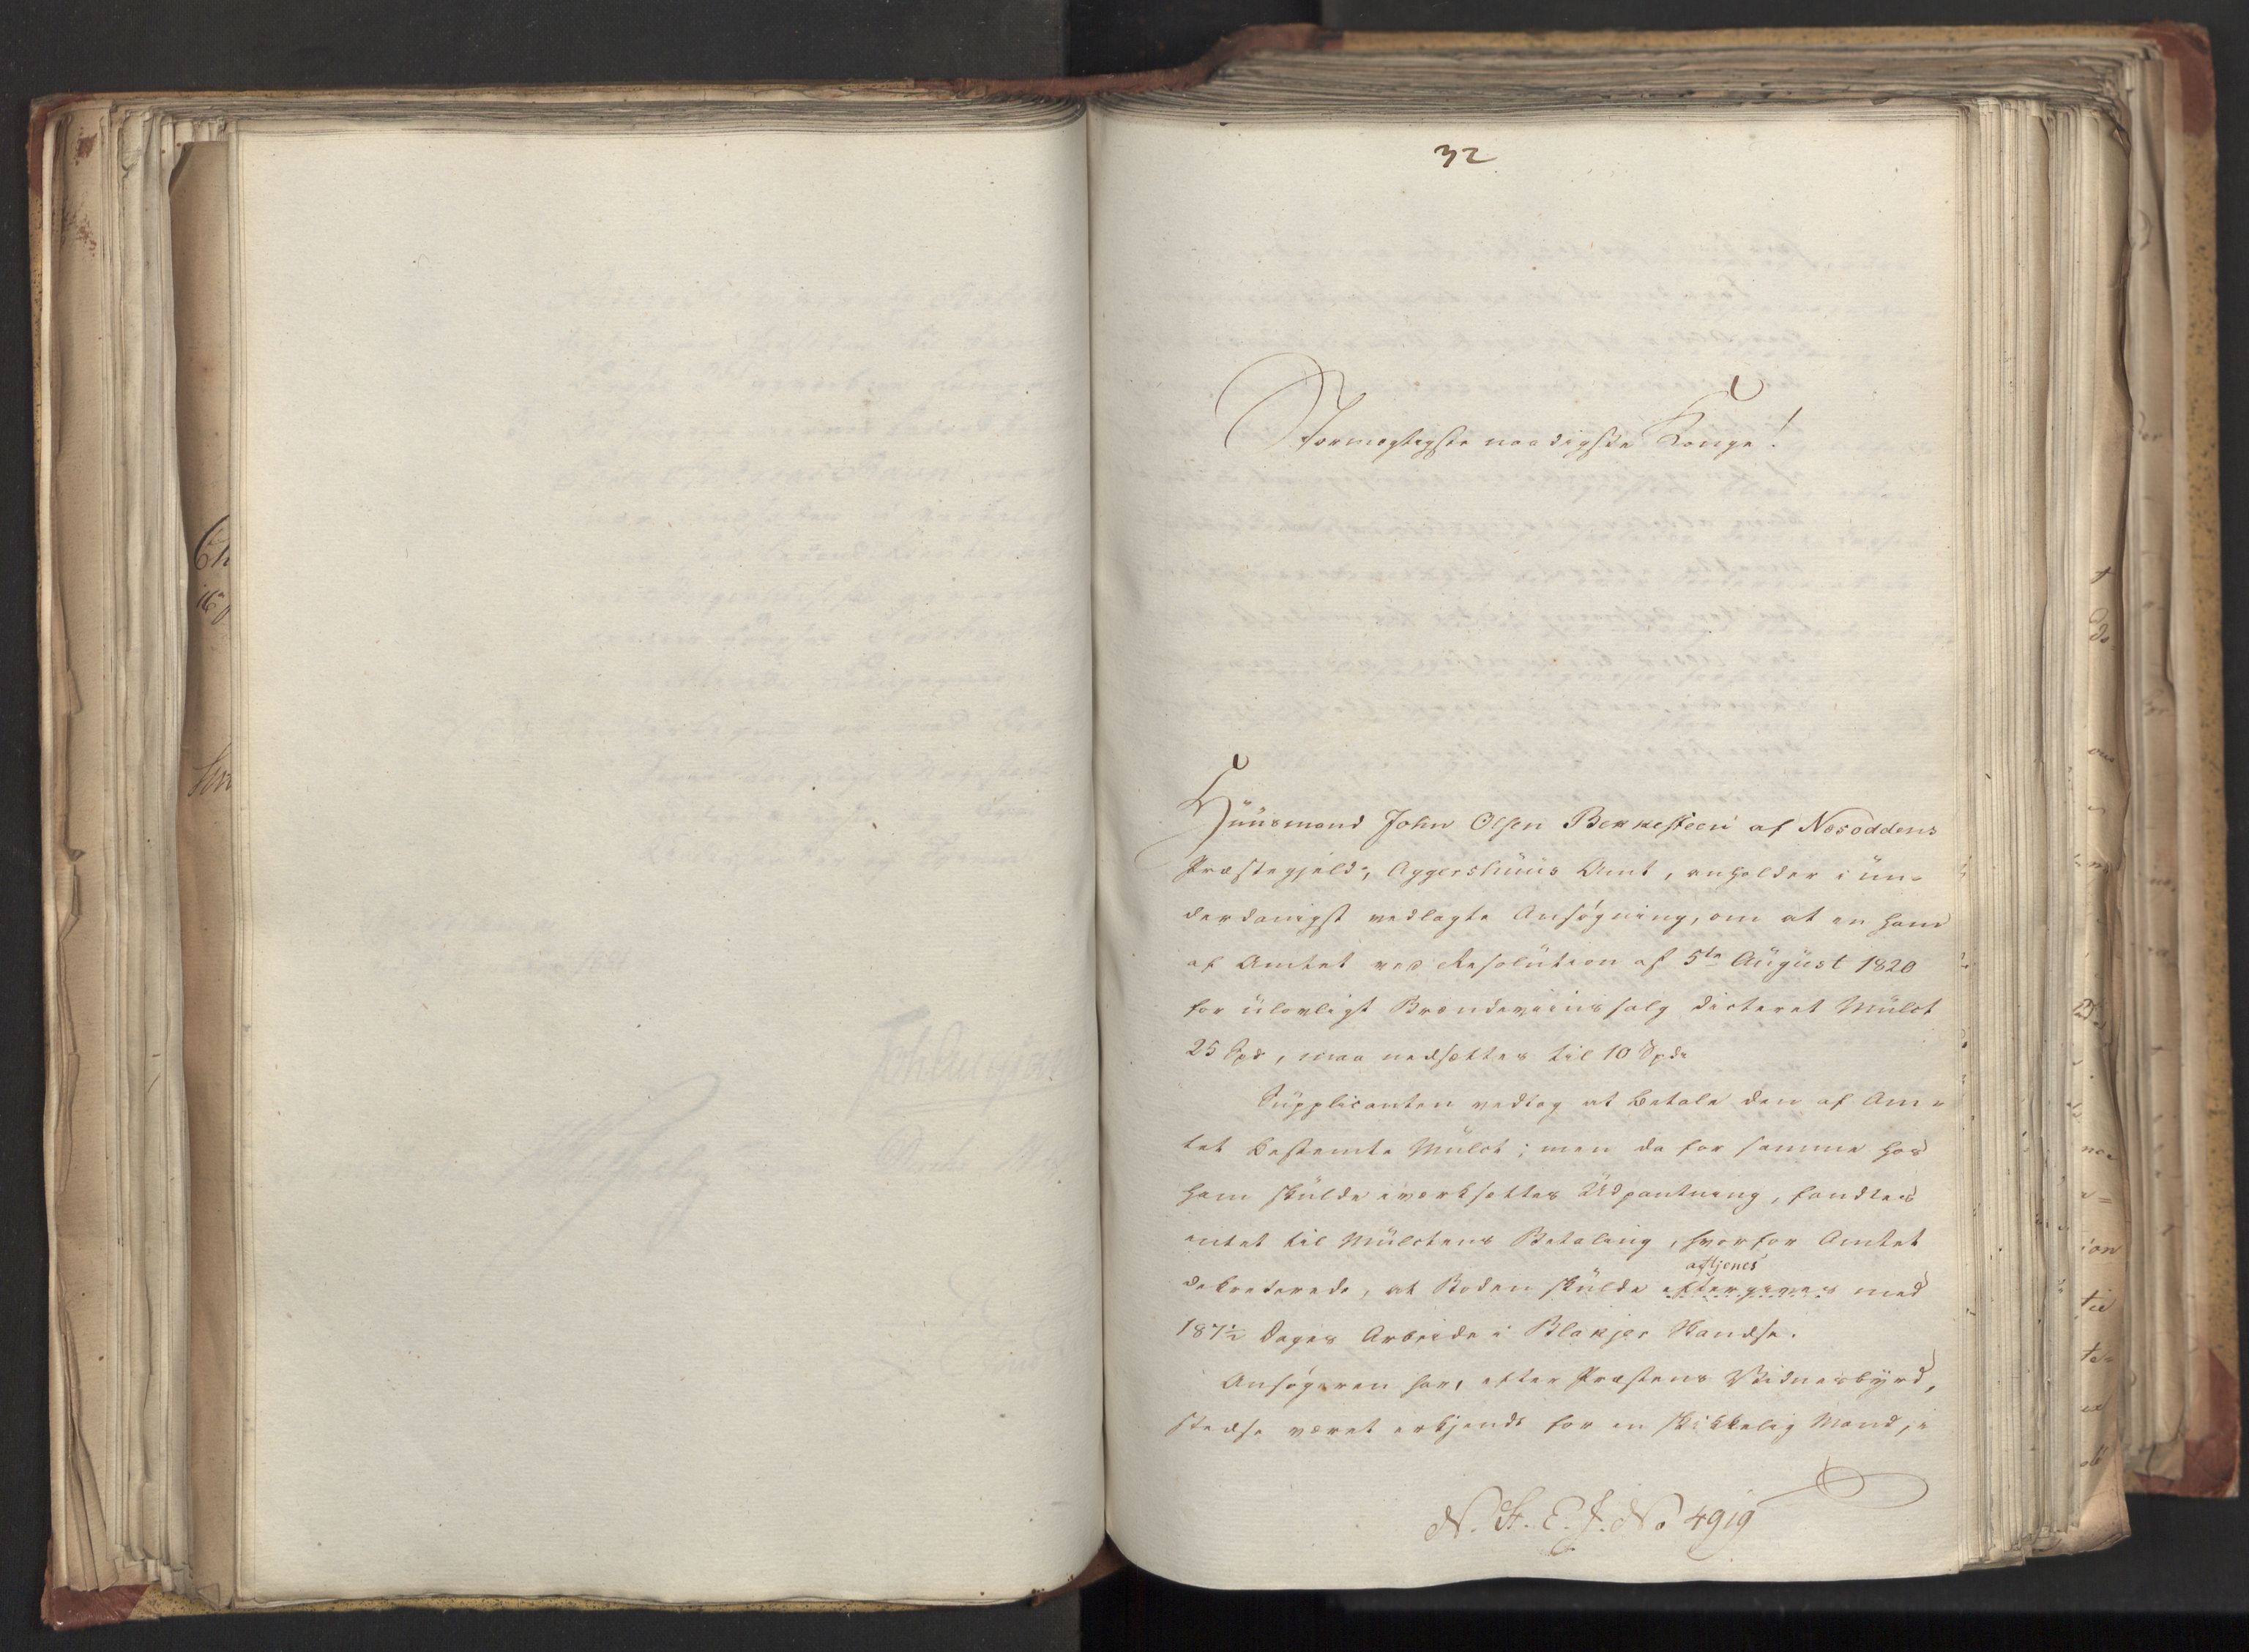 32
Stormægtigste naadigste Konge!
Huusmand John Olsen Bekkesteen af Næsoddens
Præstegjeld, Aggershuus Amt, anholder i un-
derdanigst vedlagte Ansøgning, om at en ham
af Amtet ved Resolution af 5te August 1820
for ulovligt Brændeviinssalg dicteret Mulct
25 Spd, maa nedsættes til 10 Spd.
Supplicanten vedtog at betale den af Am-
tet bestemte Mulct; men da for samme hos
ham skulde iværksættes Udpantning, fandtes
intet til Mulctens Betaling, hvorfor Amtet
aftjenes
dekreterede, at Boden skulde eftergives med
187½ Dages Arbeide i Blakjer Skandse.
Ansøgeren har, efter Præstens Vidnesbyrd,
stedse været erkjendt for en skikkelig Mand, i
N. St. E. J. No 4919
Ch
16